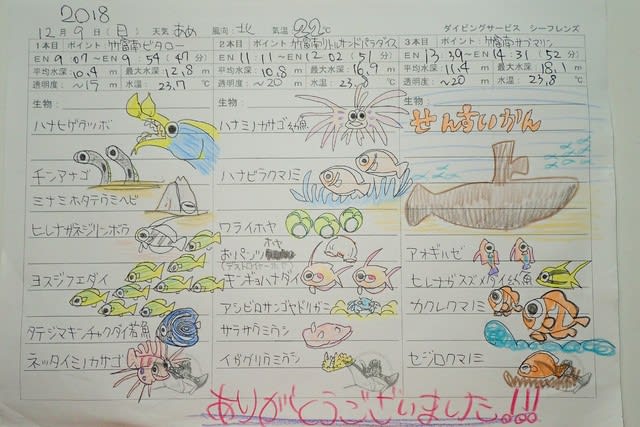 2018
12月9日(日) 天気 あめ 風向 北 気温 22℃ ダイビングサービス シーフレンズ
1本目 ポイント 竹富南ビタロー
EN 9 07 〜 EN 9 54 (47分)
平均水深 10.4 m 最大水深 12.8 m
透明度 〜15 m 水温 23.7 ℃
生物:
ハナヒゲウツボ
チンアナゴ
ミナミホタテウミヘビ
ヒレナガネジリンボウ
ヨスジフエダイ
タテジマキンチャクダイ若魚
ネッタイミノカサゴ
2本目 ポイント 竹富南リトルサンドパラダイス
EN 11 11 〜 EN 12 02 (51分)
平均水深 10.8 m 最大水深 16.9 m
透明度 〜20 m 水温 23.8 ℃
生物:
ハナミノカサゴ幼魚
ハナビラクマノミ
ワライホヤ
おパンツホヤ
キンギョハナダイ
アシビロサンゴヤドリガニ
サラサウミウシ
イガグリウミウシ
3本目 ポイント 竹富南サブマリン
EN 13 39 〜 EN 14 31 (52分)
平均水深 11.4 m 最大水深 18.1 m
透明度 〜20 m 水温 23.8 ℃
生物:
せんすいかん
アオギハゼ
ヒレナガスズメダイ幼魚
カクレクマノミ
セジロクマノミ
ありがとうございました!!!